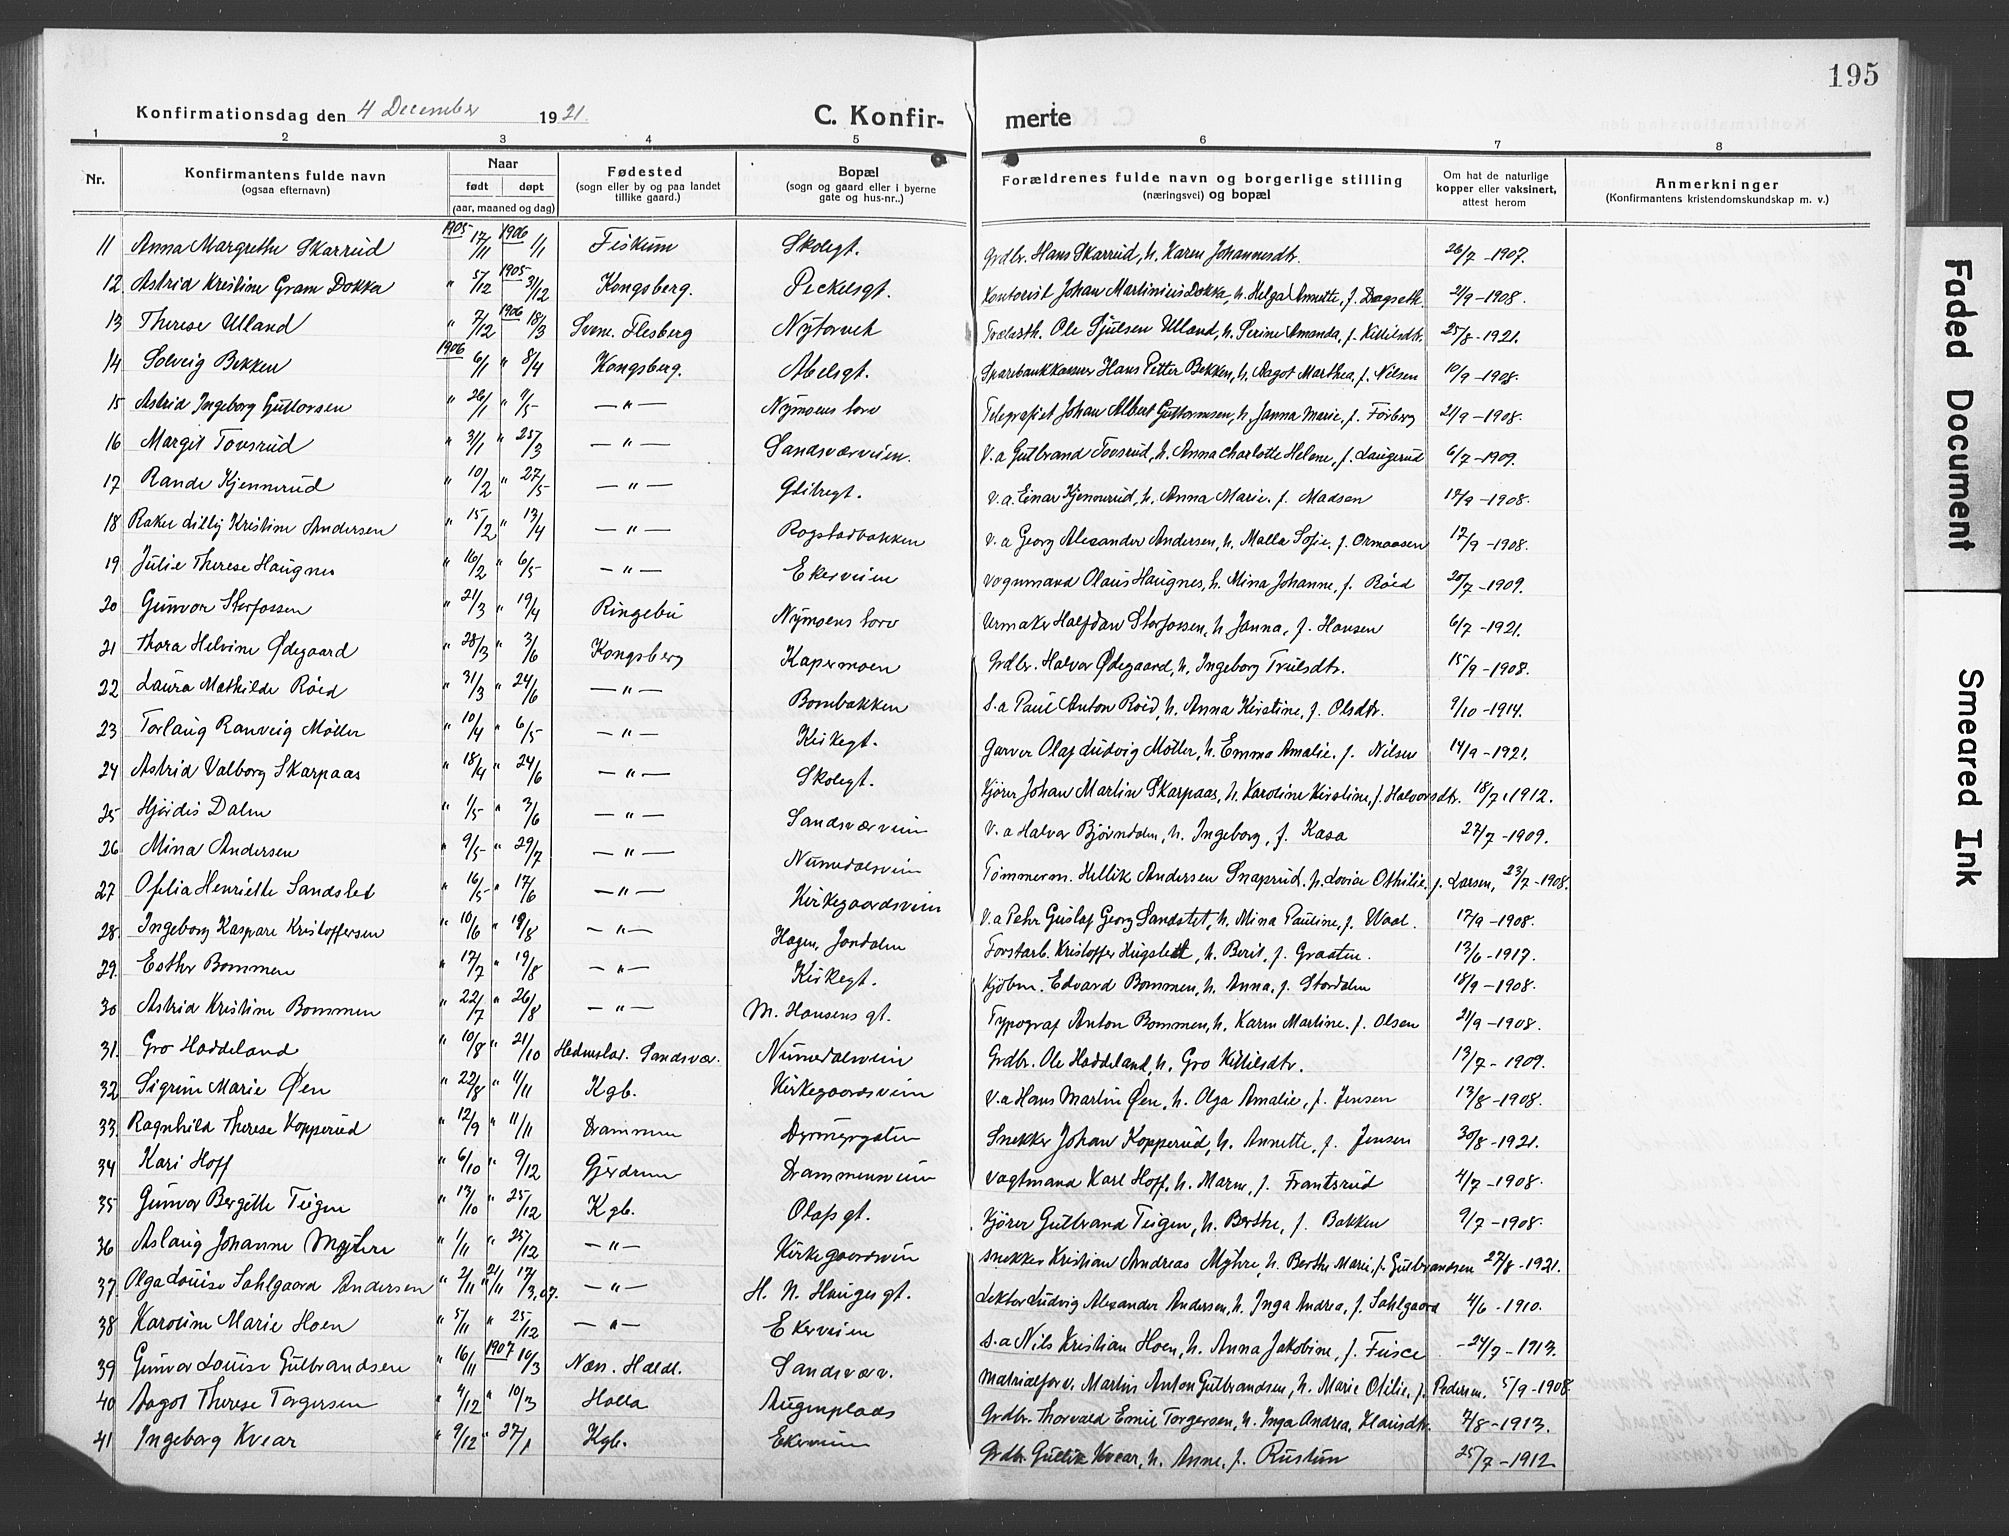 195
Konfirmationsdag den 4 December 1921.
C. Konfir- merte
1 2 3 4 5 6 7 8
Nr. Konfirmantens fulde navn (ogsaa efternavn) Naar født døpt (aar, maaned og dag) Fødested (sogn eller by og paa landet tillike gaard.) Bopæl (sogn og gaard eller i byerne gate og hus-nr..) Forældrenes fulde navn og borgerlige stilling (næringsvei) og bopæl Om hat de naturlige kopper eller vaksinert, attest herom Anmerkninger (Konfirmantens kristendomskundskap m. v.)
11 Anna Margrethe Skarrud 1905 17/11 1906 1/1 Fiskum Skolegt. Grdbr. Hans Skarrud, h. Karen Johannesdtr. 26/7 - 1907.
12. Astrid Kristine Gram Dokka " 5/12 1905 31/12 Kongsberg. Peckelsgt. Kontorist Johan Martinius Dokka, h. Helga Annette, f. Dagseth. 21/9 - 1908.
13 Therese Ulland " 7/12 1906 18/3 Svene. Flesberg Nytorvet Trælasth. Ole Sjulsen Ulland, h. Serine Amanda, f. Kittilsdtr. 25/8 - 1921.
14 Solveig Bekken 1906 6/1 " 8/4 Kongsberg. Abelsgt. Sparebankkasserer Hans Petter Bekken, h. Aagot Marthea, f. Nilsen 10/9 - 1908.
15 Astrid Ingeborg Guttormsen " 26/1 " /5 — " — Nymoens torv Telegrafist Johan Albert Guttormsen, h. Janna Marie, f. Førberg 21/9 - 1908.
16 Margit Tovsrud " 31/1 " 25/3 — " — Sandsværveien. V.a Gulbrand Tovsrud, h. Anna Charlotte Helene, f. Laugerud 6/7 - 1909.
17 Randi Kjennerud " 10/2 " 27/5 — " — Glitregt. V.a. Einar Kjennerud, h. Anna Marie, f. Madsen 18/9 - 1908.
18 Rakel Lilly Kristine Andersen " 15/2 " 13/4 — " — Rogstadbakken V.a Georg Alexander Andersen, h. Malla Sofie, f. Ormaasen 17/9 - 1908.
19 Julie Therese Haugnes " 16/2 " 6/5 — " — Ekerveien Vognmand Olaus Haugnes, h. Mina Johanne, f. Røed 20/7 - 1909.
20 Gunvor Storfossen " 21/3 " 19/4 Ringebu Nymoens torv Urmaker Halfdan Storfossen, h. Janna, f. Hansen 6/7 - 1921.
21 Thora Helvine Ødegaard " 28/3 " 3/6 Kongsberg Kapermoen Grdbr. Halvor Ødegaard, h. Ingeborg Trulsdtr. 15/9 - 1908.
22 Laura Mathilde Røed " 31/3 " 24/6 — " — Bombakken S.a Paul Anton Røed, h. Anna Kirstine, f. Olsdtr. 9/10 - 1914.
23 Torlaug Ranveig Møller " 10/4 " 6/5 — " — Kirkegt. Garver Olaf Ludvig Møller, h. Emma Amalie, f. Nilsen 14/9 - 1921.
24 Astrid Valborg Skarpaas " 18/4 " 24/6 — " — Skolegt. Kjører Johan Martin Skarpaas, h. Karoline Kirstine, f. Halvorsdtr. 18/7 - 1912.
25 Hjørdis Dalen " 1/5 " 3/6 — " — Sandsværveien V.a Halvor Bjørndalen, h. Ingeborg, f. Kasa 27/7 - 1909.
26 Mina Andersen " 9/5 " 29/7 — " — Numedalsveien Tømmerm. Hellik Andersen Snaprud, h. Lovise Othilie, f. Larsen, 23/7 - 1908.
27 Ofelia Henriette Sandstet " 16/5 " 17/6 — " — Kirkegaardsveien V.a Pehr Gustaf Georg Sandstet, h. Mina Pauline, f. Waal. 17/9 - 1908.
28. Ingeborg Kaspare Kristoffersen " 10/6 " 19/8 — " — Hagen, Jondalen Forstarb. Kristoffer Hugstedt, h. Berit, f. Graaten. 13/6 - 1917.
29. Esther Bommen " 17/7 " 19/8 — " — Kirkegt. Kjøbm. Edvard Bommen, h. Anna, f. Stordalen 18/9 - 1908.
30 Astrid Kristine Bommen " 22/7 " 26/8 — " — M. Hansens gt. Typograf Anton Bommen, h. Karen Martine, f. Olsen 21/9 - 1908.
31. Gro Haddeland " 10/8 " 21/10 Hedenstad. Sandsvær. Numedalsveien Grdbr. Ole Haddeland, h. Gro Kittilsdtr. 13/7 - 1909.
32 Sigrun Marie Øen " 22/8 " 4/11 Kgb. Kirkegaardsveien V.a Hans Martin Øen, h. Olga Amalie, f. Jensen 13/8 - 1908.
33. Ragnhild Therese Kopperud " 12/9 " 11/11 Drammen Dyrmyrgaten Snekker Johan Kopperud, h. Annette, f. Jensen 30/8 - 1921.
34 Kari Hoff " 6/10 " 9/12 Gjerdrum Drammensveien Vagtmand Karl Hoff, h. Maren, f. Frantsrud 4/7 - 1908.
35 Gunvor Bergitte Teigen " 13/10 " 25/12 Kgb. Olafsgt. Kjører Gulbrand Teigen, h. Berthe, f. Bakken 9/7 - 1908.
36 Aslaug Johanne Myhre " 1/11 " 25/12 — " — Kirkegaardsveien Snekker Kristian Andreas Myhre, h. Berthe Marie, f. Gulbrandsen 27/8 - 1921.
37. Olga Louise Sahlgaard Andersen " 2/11 " 17/3.07. — " — H. N. Haugesgt. Lektor Ludvig Alexander Andersen, h. Inga Andrea, f. Sahlgaard 4/6 - 1910.
38 Karoline Marie Hoen " 5/11 " 25/12 — " — Ekerveien S.a Nils Kristian Hoen, h. Anna Jakobine, f. - 24/7 - 1913.
39 Gunvor Louise Gulbrandsen " 16/11 1907 10/3 Næs. Hald. Sandsværv. Matrialforv. Martin Anton Gulbrandsen, h. Marie Otilie, f. Pedersen. 5/9 - 1908.
40 Aagot Therese Torgersen " 4/12 " 10/3 Holla Augenplads Grdbr. Thorvald Emil Torgersen, h. Inga Andrea, Hansdtr. 7/8 - 1913.
41 Ingeborg Kvear " 9/12 " 27/1 Kgb. Ekerveien Grdbr. Gullik Kvear, h. Anne, f. Rustun 25/7 - 1912
Faded Document
Smeared Ink